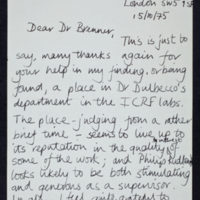 London SW5 9
15/10/75
Dear Dr Brenner,
This is just to
say, many thanks again for
your help in my finding, or being
found, a place in Dr Dulbecco's
department in the ICRF labs.
The place - judging from a rather
brief time - seems to live up to
its reputation in the quality of
some of the work; and Philip
looks likely to be both stimulating
and generous as a supervisor.
In all I feel quite grateful to